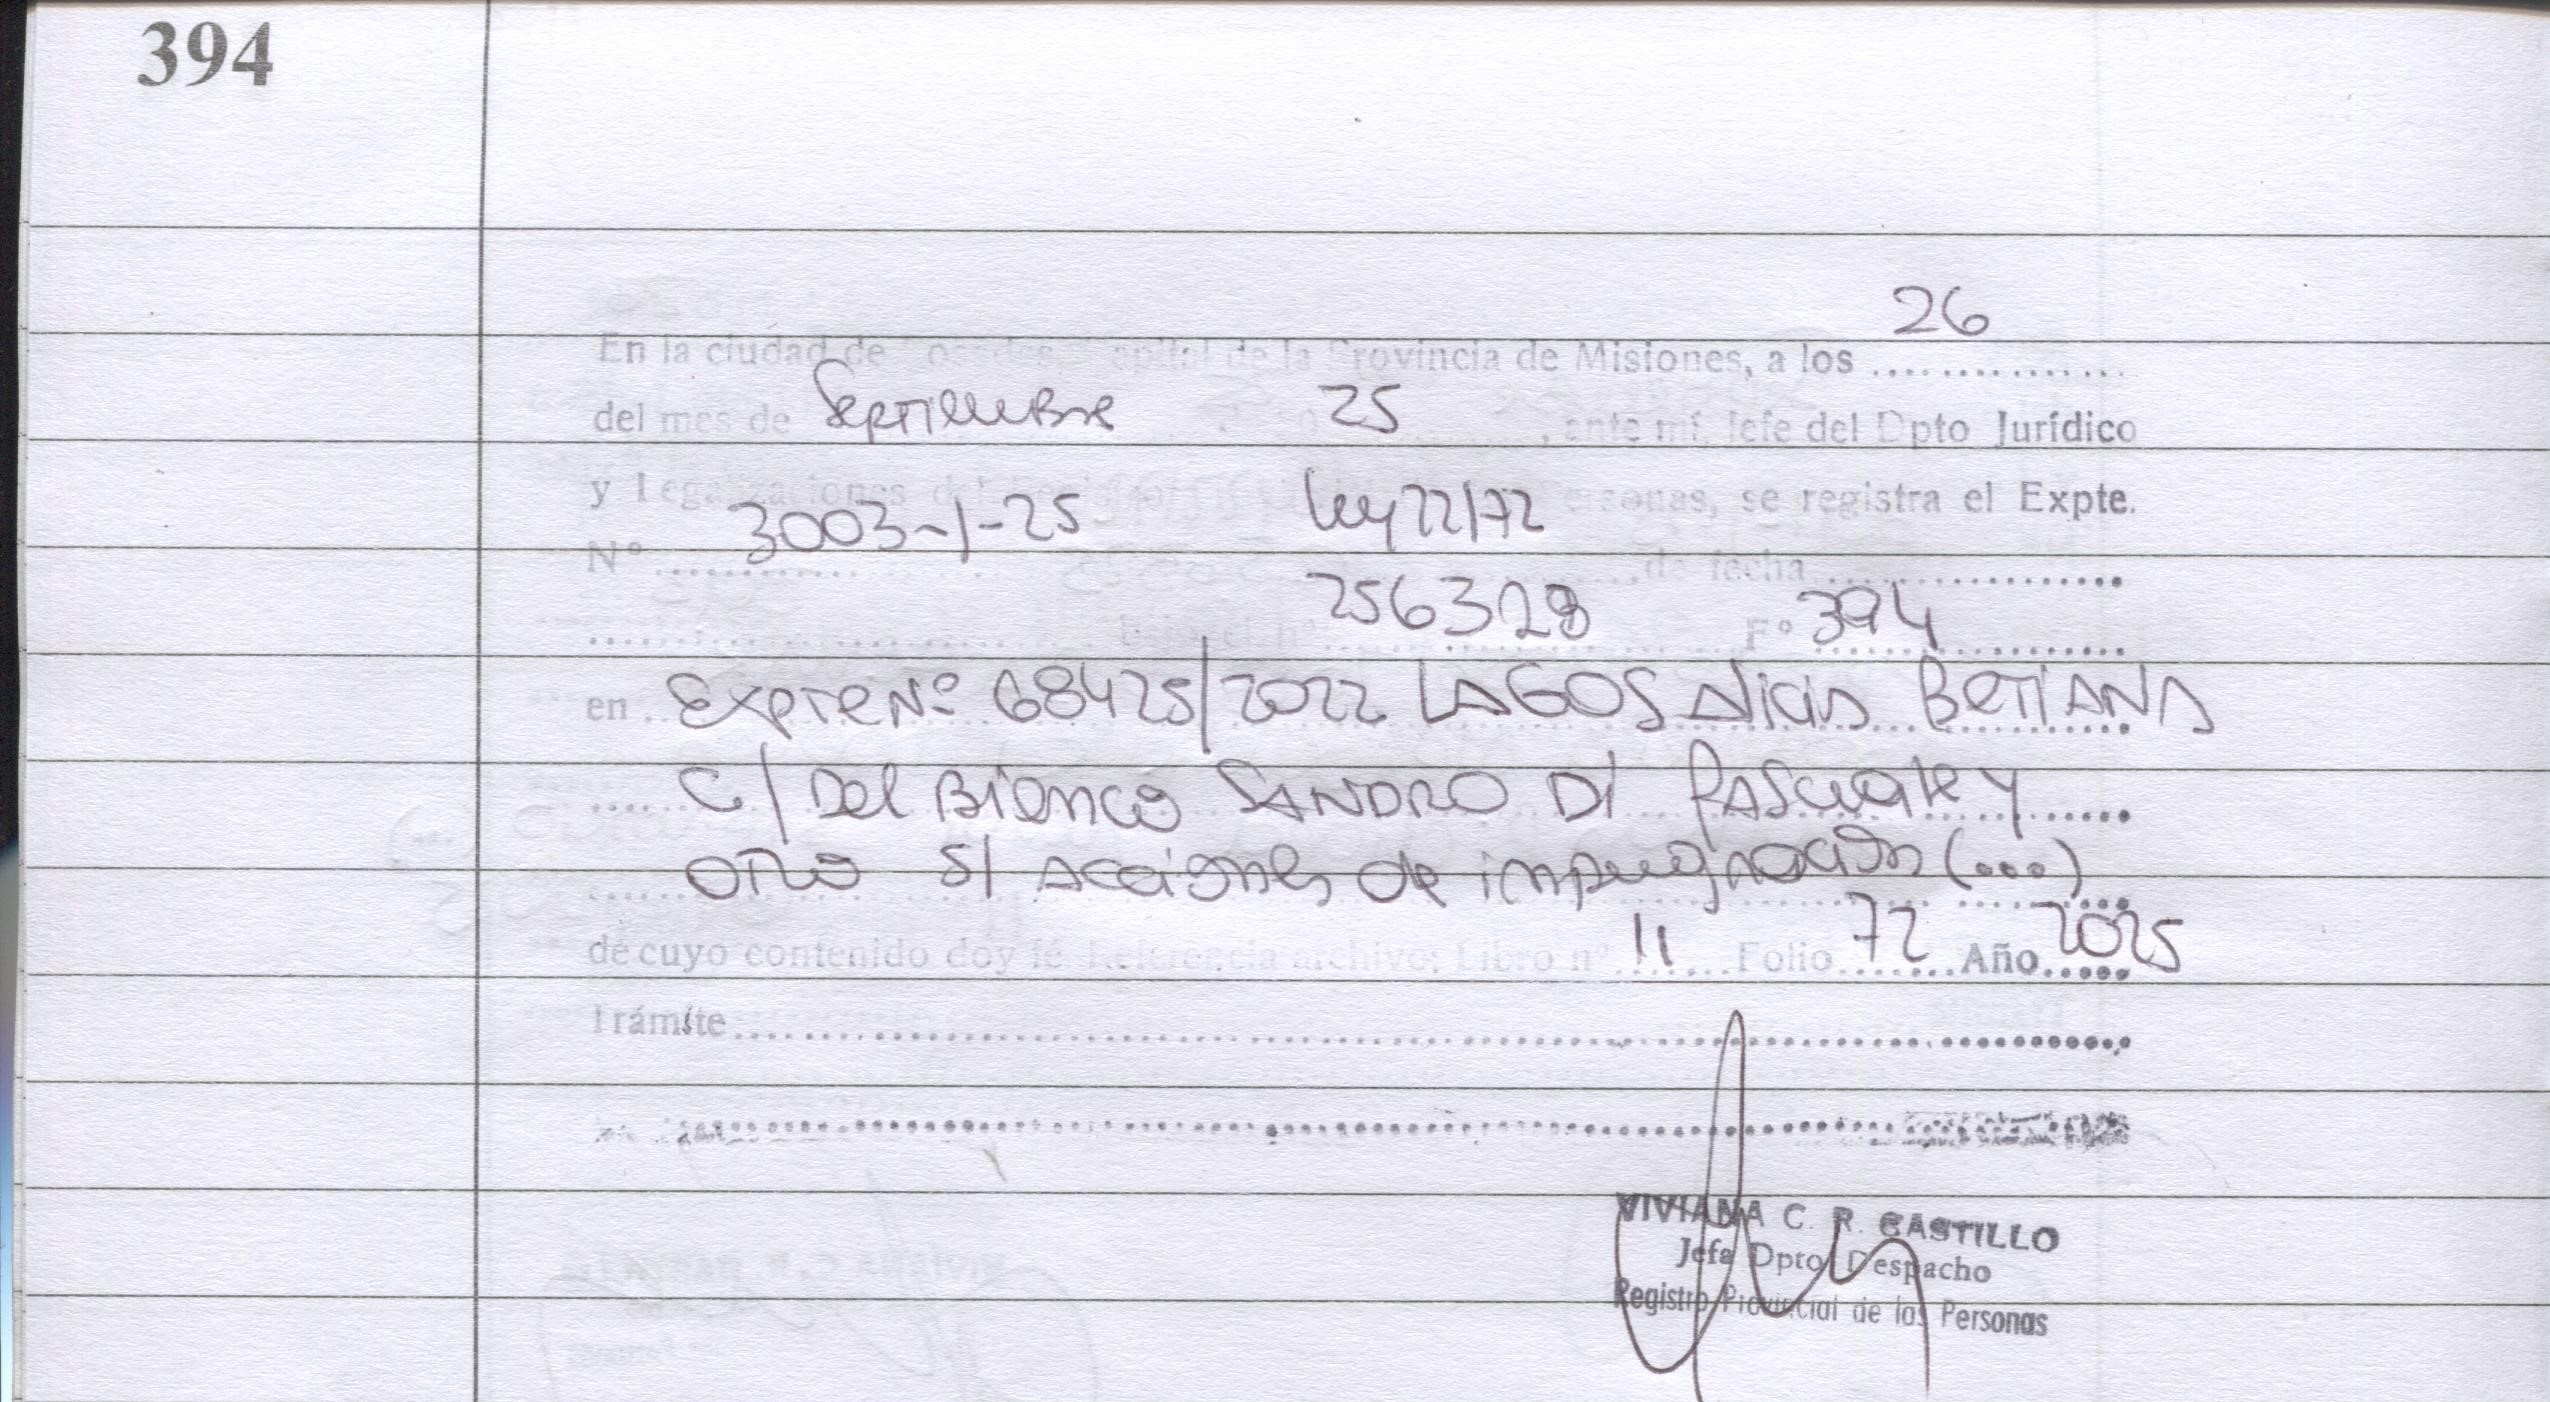 394
26
En la ciudad de Posadas, Capital de la Provincia de Misiones, a los ...............
del mes de Septiembre 25, ante mí, Jefe del Dpto Jurídico
y Legalizaciones del Personas, se registra el Expte.
Nº 3003-1-25 Ley 22/72 de fecha ...................
bajo el nº 256328 Fº 394
en Expte Nº 68425/2022 LAGOS Alicia BETIANA
C/ Del Bianco SANDRO DI PASCUALE Y
OTRO S/ acciones de impugnación (...)
de cuyo contenido doy fé. Referencia archivo: Libro nº 11 Folio 72 Año 2025
Trámite
VIVIANA C. R. CASTILLO
Jefa Dpto Despacho
Registro Provincial de las Personas